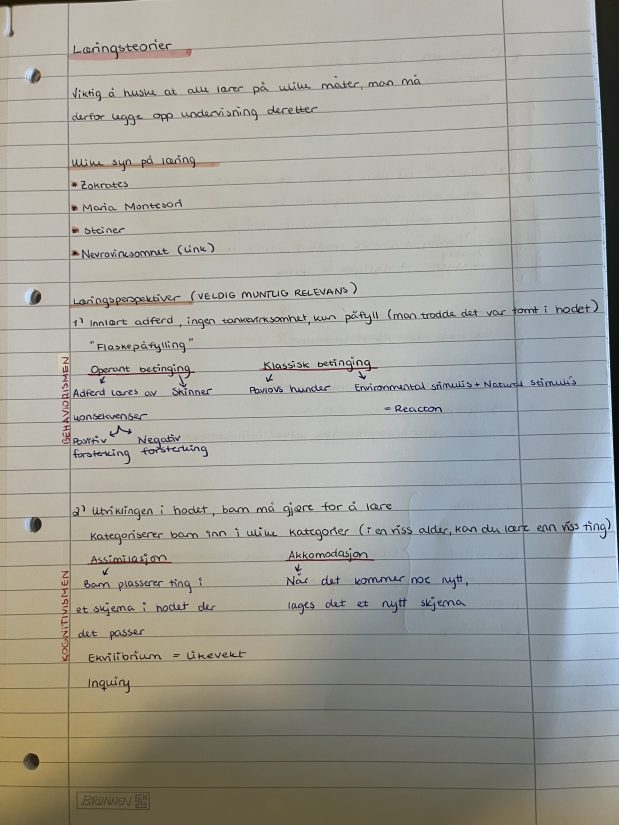 Læringsteorier
Viktig å huske at alle lærer på ulike måter, man må
derfor legge opp undervisning deretter
Ulike syn på læring
• Zokrates
• Maria Montesori
• Steiner
• Nevrovirksomhet (Link)
Læringsperspektiver (VELDIG MUNTLIG RELEVANS)
1) Innlært adferd, ingen tankevirksomhet, kun påfyll (man trodde det var tomt i hodet)
"Flaskepåfylling"
BEHAVIORISMEN
Operant betinging
Adferd læres av konsekvenser
Skinner
Positiv forsterking
Negativ forsterking
Klassisk betinging
Pavlovs hunder
Environmental stimulis + Natural stimulis
= Reaction
2) Utviklingen i hodet, barn må gjøre for å lære
Kategoriserer barn inn i ulike kategorier (i en viss alder, kan du lære enn viss ting)
KOGNITIVISMEN
Assimilasjon
Barn plasserer ting i
et skjema i hodet der
det passer
Akkomodasjon
Når det kommer noe nytt,
lages det et nytt skjema
Ekvilibrium = likevekt
Inquiry
BRUNNEN